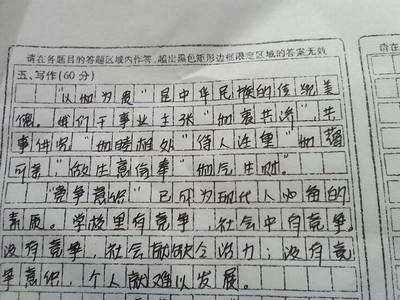 请在各题目的答题区域内作答,超出黑色矩形边框限定区域的答案无效
五、写作(60分)
"以和为贵"是中华民族的传统美
德。我们于事业主张"和衷共济",共
事讲究"和睦相处"待人注重"和蔼
可亲""做生意信奉"和气生财。"
"竞争意识"已成为现代人必备的
素质。学校里有竞争,社会中有竞争。
没有竞争,社会就缺乏活力;没有竞
争意识,个人就难以发展。
请在